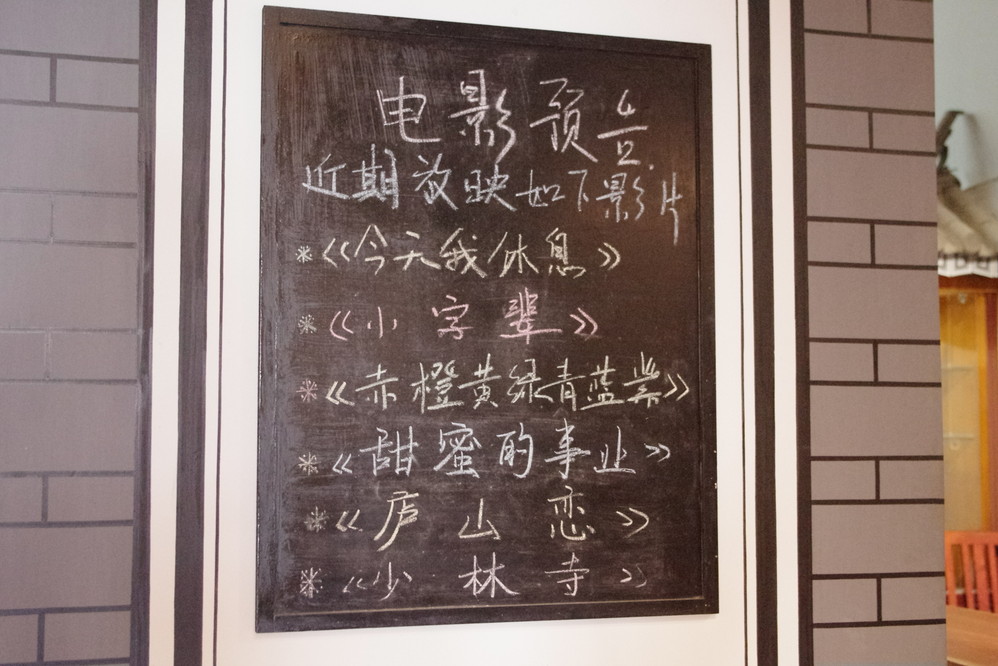 电影预告
近期放映如下影片
*《今天我休息》
*《小字辈》
*《赤橙黄绿青蓝紫》
*《甜蜜的事业》
*《庐山恋》
*《少林寺》